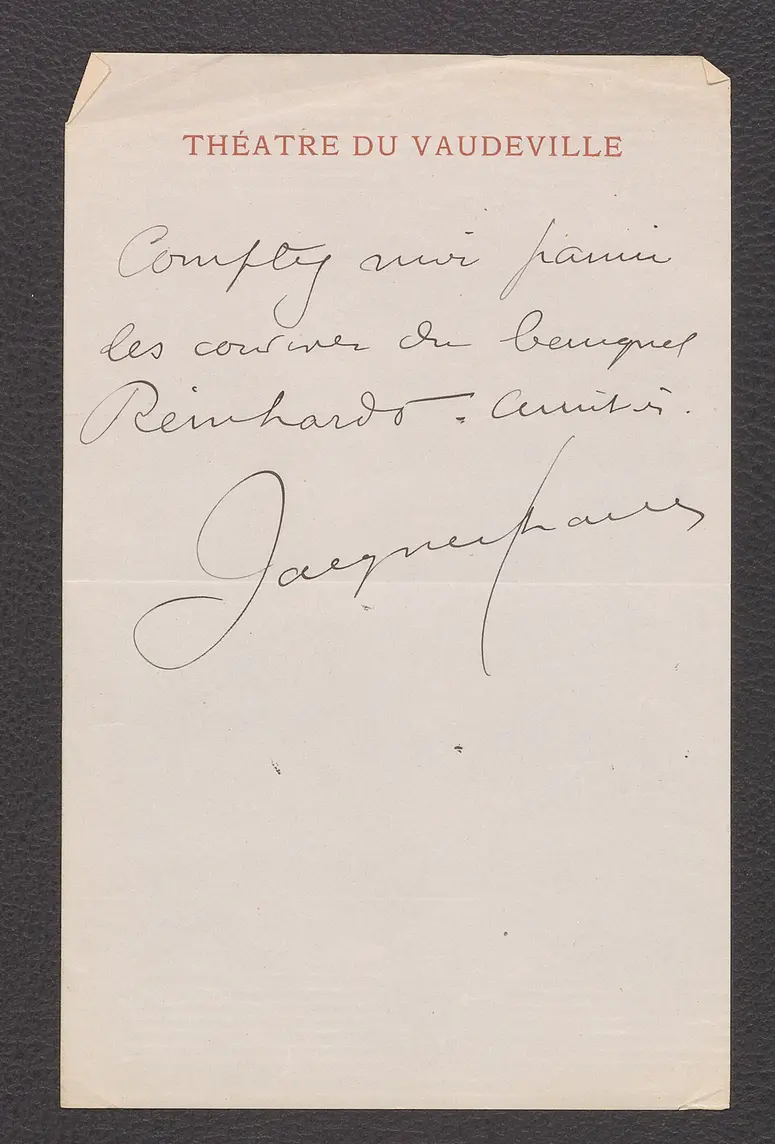 THÉATRE DU VAUDEVILLE
Comptez moi parmi
les convives du banquet
Reinhardt - Amitiés.
Jacques